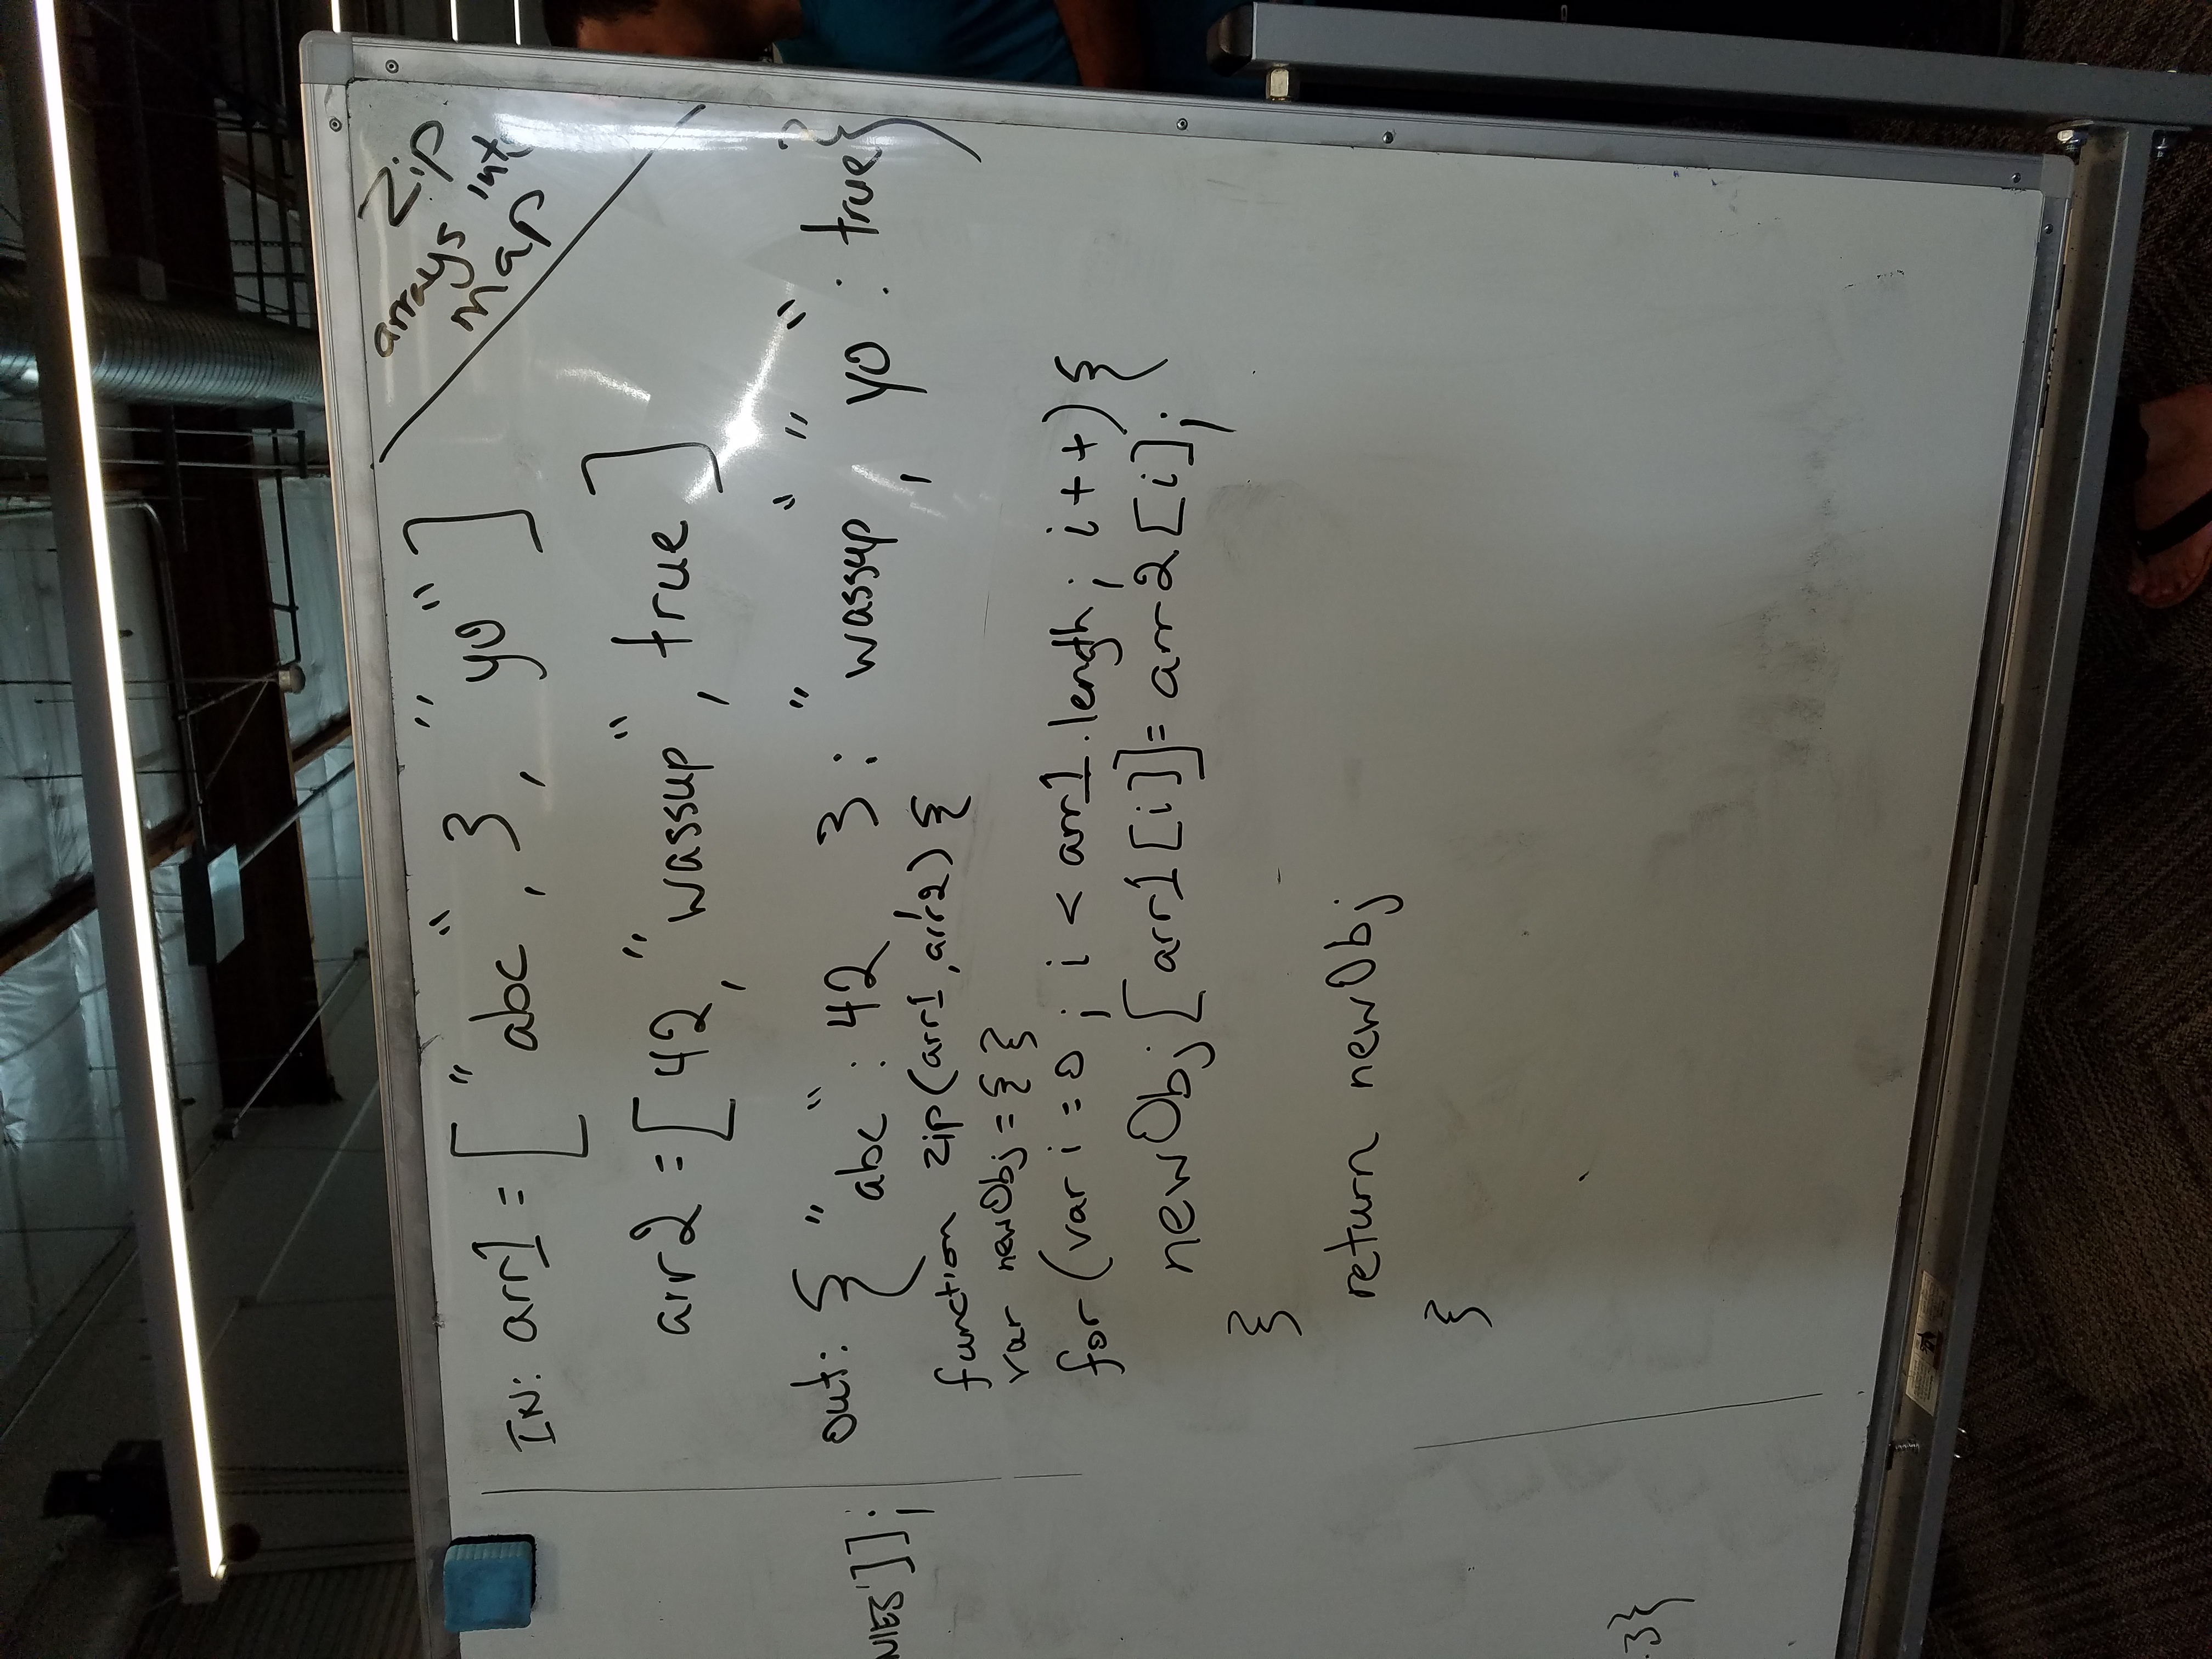 Zip
arrays into
Map
IN: arr1 = ["abc", 3, "yo"]
arr2 = [42, "wassup", true]
out: {"abc": 42, 3: "wassup", "yo": true}
function zip(arr1, arr2) {
var newObj = { }
for (var i = 0; i < arr1.length; i++) {
newObj[arr1[i]] = arr2[i];
}
return newObj
}
NIES']];
.3}